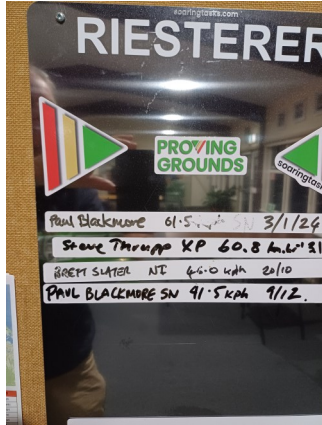 soaringtasks.com
RIESTERER
PROVING
GROUNDS
soaringtas
Paul Blackmore 61.5 SN 3/1/24
Steve Thrupp XP 60.8
BRETT SLATER NI 46.0 kph 20/10
PAUL BLACKMORE SN 41.5 kph 9/12.